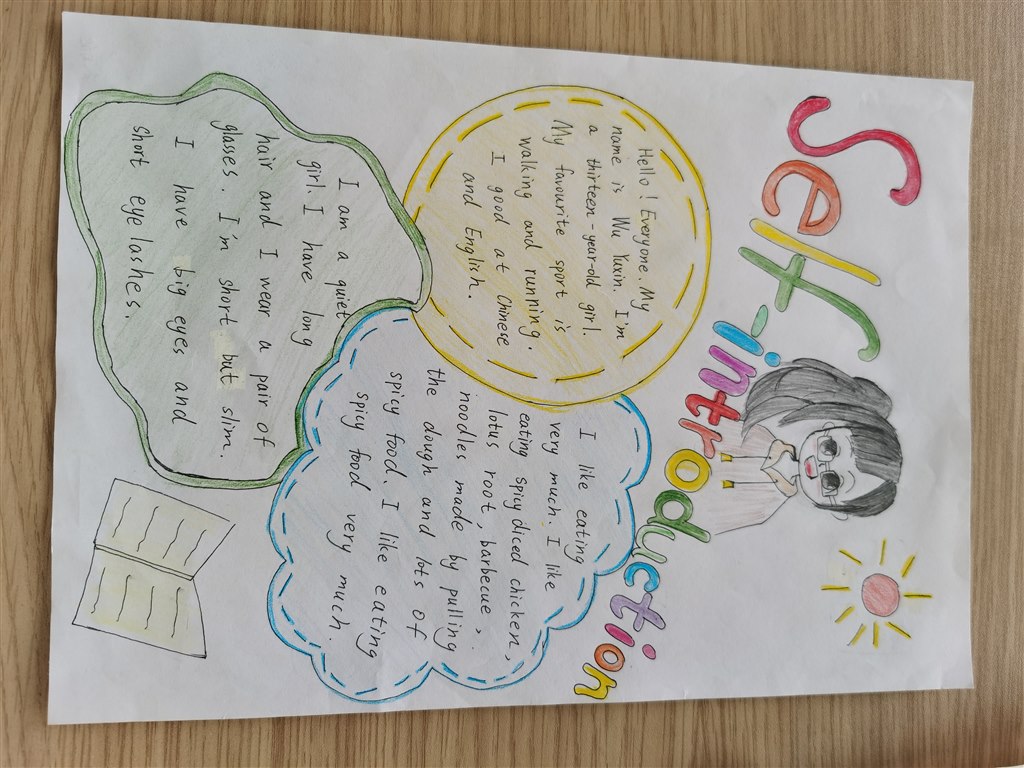 Self-introduction
Hello! Everyone. My
name is Wu Yuxin. I'm
a thirteen-year-old girl.
My favourite sport is
walking and running.
I good at Chinese
and English.
I am a quiet
girl. I have long
hair and I wear a pair of
glasses. I'm short but slim.
I have big eyes and
short eyelashes.
I like eating
very much. I like
eating spicy diced chicken,
lotus root, barbecue,
noodles made by pulling
the dough and lots of
spicy food. I like eating
spicy food very much.